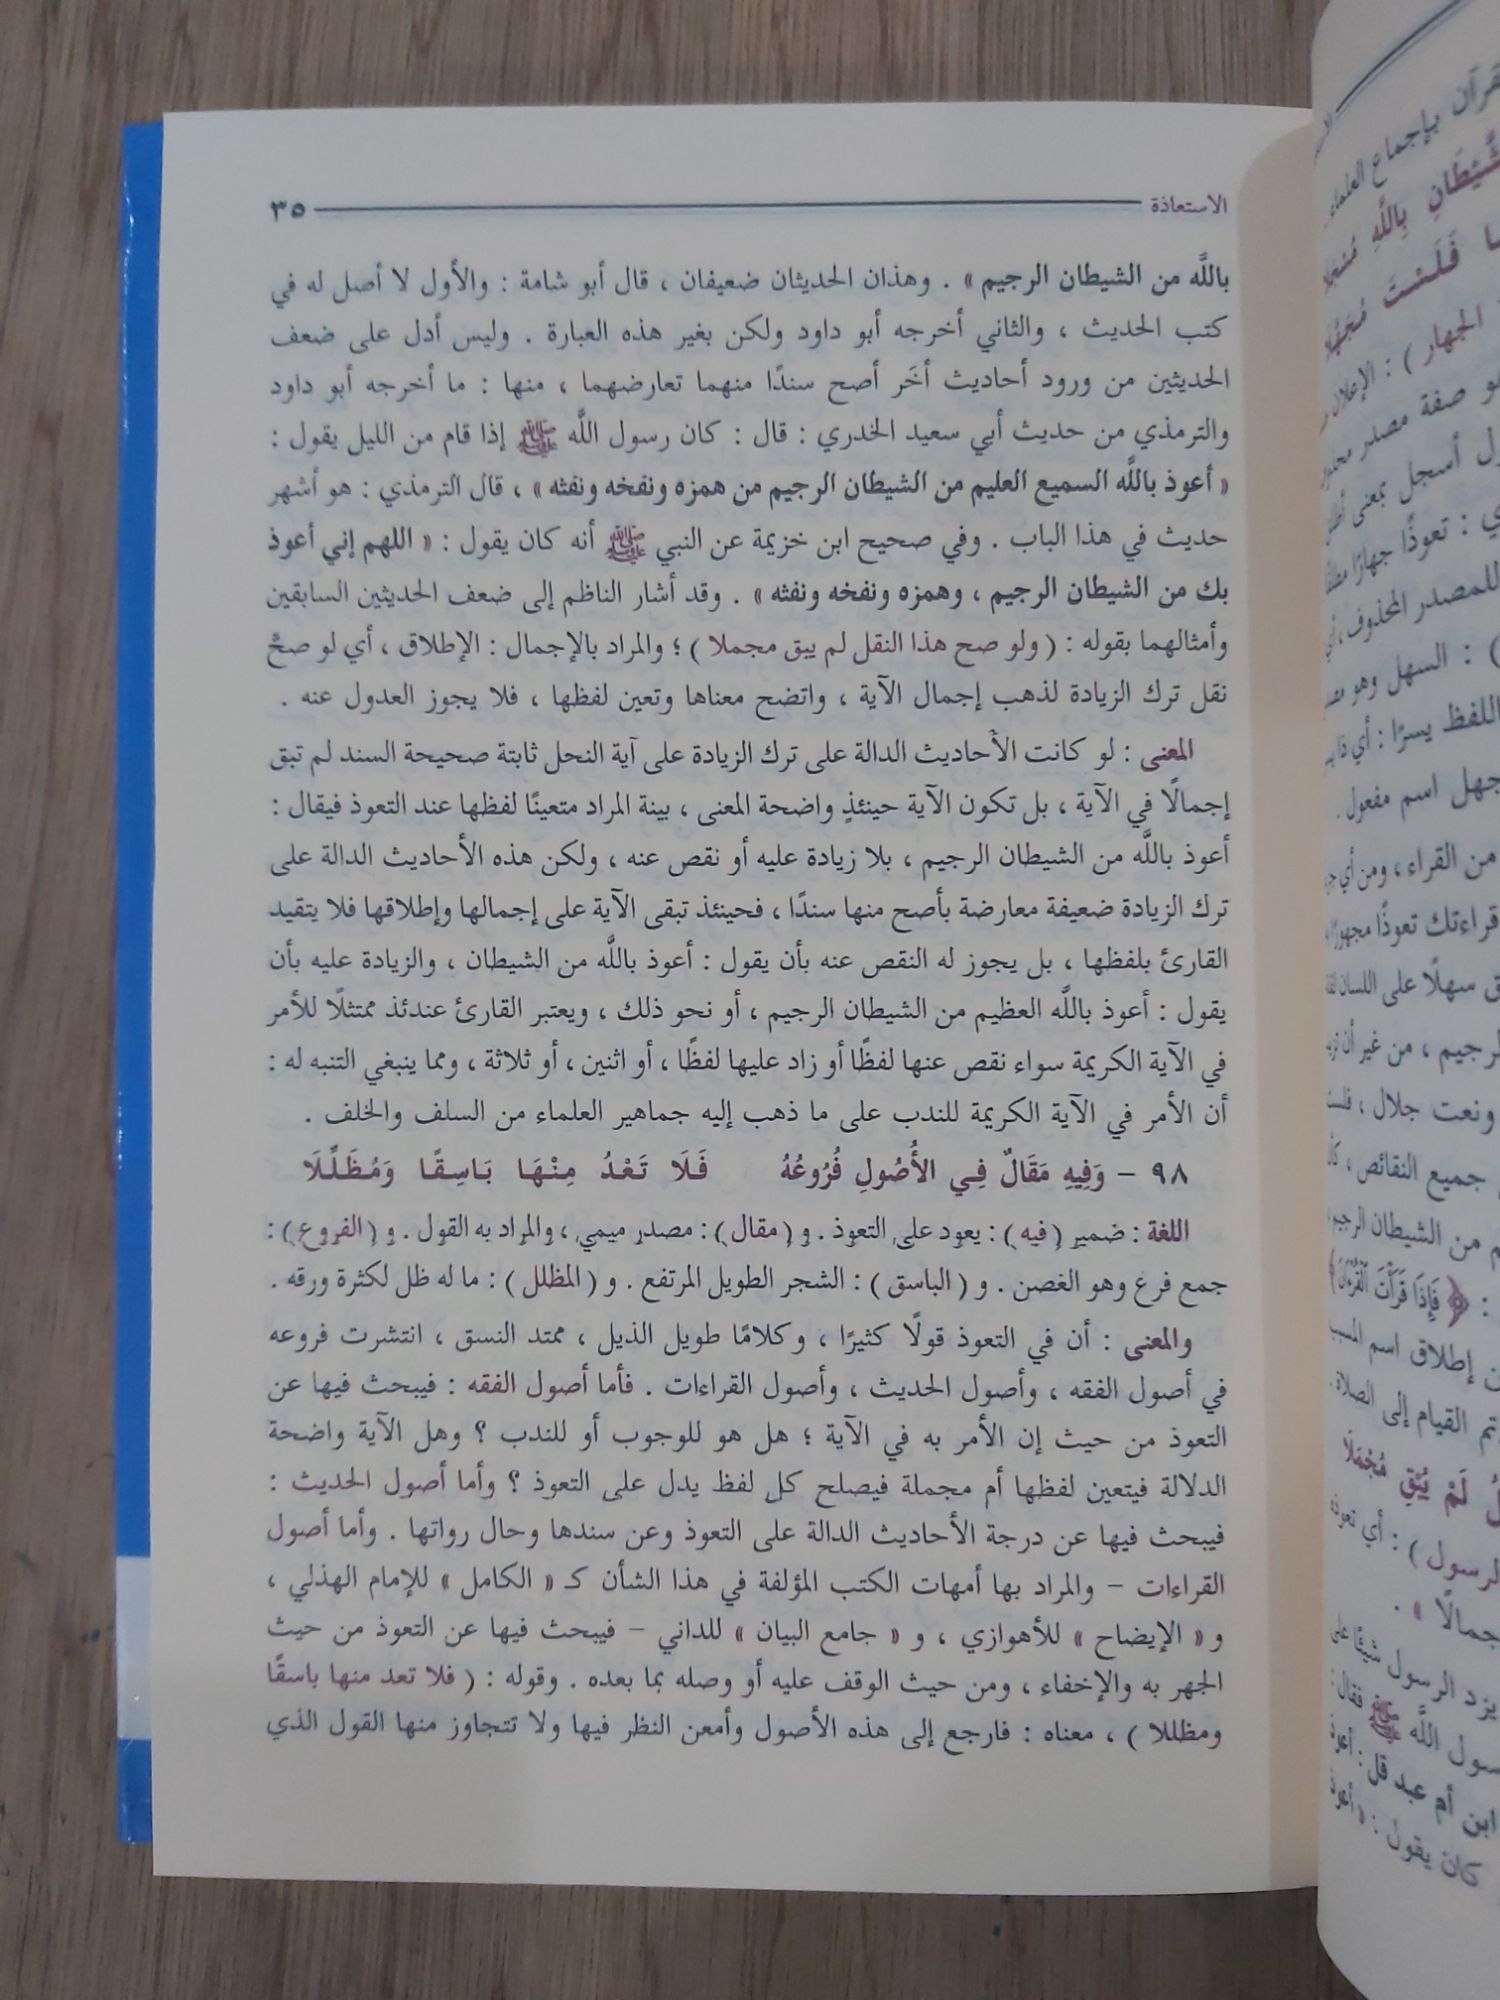 الاستعاذة ٣٥
باللَّه من الشيطان الرجيم » . وهذان الحديثان ضعيفان ، قال أبو شامة : والأول لا أصل له في
كتب الحديث ، والثاني أخرجه أبو داود ولكن بغير هذه العبارة . وليس أدل على ضعف
الحديثين من ورود أحاديث أخَر أصح سندًا منهما تعارضهما ، منها : ما أخرجه أبو داود
والترمذي من حديث أبي سعيد الخدري : قال : كان رسول اللَّه ﷺ إذا قام من الليل يقول :
« أعوذ باللَّه السميع العليم من الشيطان الرجيم من همزه ونفخه ونفثه » ، قال الترمذي : هو أشهر
حديث في هذا الباب . وفي صحيح ابن خزيمة عن النبي ﷺ أنه كان يقول : « اللهم إني أعوذ
بك من الشيطان الرجيم ، وهمزه ونفخه ونفثه » . وقد أشار الناظم إلى ضعف الحديثين السابقين
وأمثالهما بقوله : ( ولو صح هذا النقل لم يبق مجملا ) ؛ والمراد بالإجمال : الإطلاق ، أي لو صحَّ
نقل ترك الزيادة لذهب إجمال الآية ، واتضح معناها وتعين لفظها ، فلا يجوز العدول عنه .
المعنى : لو كانت الأحاديث الدالة على ترك الزيادة على آية النحل ثابتة صحيحة السند لم تبق
إجمالًا في الآية ، بل تكون الآية حينئذٍ واضحة المعنى ، بينة المراد متعينًا لفظها عند التعوذ فيقال :
أعوذ باللَّه من الشيطان الرجيم ، بلا زيادة عليه أو نقص عنه ، ولكن هذه الأحاديث الدالة على
ترك الزيادة ضعيفة معارضة بأصح منها سندًا ، فحينئذ تبقى الآية على إجمالها وإطلاقها فلا يتقيد
القارئ بلفظها ، بل يجوز له النقص عنه بأن يقول : أعوذ باللَّه من الشيطان ، والزيادة عليه بأن
يقول : أعوذ باللَّه العظيم من الشيطان الرجيم ، أو نحو ذلك ، ويعتبر القارئ عندئذ ممتثلًا للأمر
في الآية الكريمة سواء نقص عنها لفظًا أو زاد عليها لفظًا ، أو اثنين ، أو ثلاثة ، ومما ينبغي التنبه له :
أن الأمر في الآية الكريمة للندب على ما ذهب إليه جماهير العلماء من السلف والخلف .
٩٨ - وَفِيهِ مَقَالٌ فِي الأُصُولِ فُرُوعُهُ فَلَا تَعْدُ مِنْهَا بَاسِقًا وَمُظَلِّلَا
اللغة : ضمير (فيه) : يعود على التعوذ . و (مقال) : مصدر ميمي ، والمراد به القول . و (الفروع) :
جمع فرع وهو الغصن . و ( الباسق ) : الشجر الطويل المرتفع . و ( المظلل ) : ما له ظل لكثرة ورقه .
والمعنى : أن في التعوذ قولًا كثيرًا ، وكلامًا طويل الذيل ، ممتد النسق ، انتشرت فروعه
في أصول الفقه ، وأصول الحديث ، وأصول القراءات . فأما أصول الفقه : فيبحث فيها عن
التعوذ من حيث إن الأمر به في الآية ؛ هل هو للوجوب أو للندب ؟ وهل الآية واضحة
الدلالة فيتعين لفظها أم مجملة فيصلح كل لفظ يدل على التعوذ ؟ وأما أصول الحديث :
فيبحث فيها عن درجة الأحاديث الدالة على التعوذ وعن سندها وحال رواتها . وأما أصول
القراءات - والمراد بها أمهات الكتب المؤلفة في هذا الشأن كـ « الكامل » للإمام الهذلي ،
و « الإيضاح » للأهوازي ، و « جامع البيان » للداني - فيبحث فيها عن التعوذ من حيث
الجهر به والإخفاء ، ومن حيث الوقف عليه أو وصله بما بعده . وقوله : ( فلا تعد منها باسقًا
ومظللا ) ، معناه : فارجع إلى هذه الأصول وأمعن النظر فيها ولا تتجاوز منها القول الذي